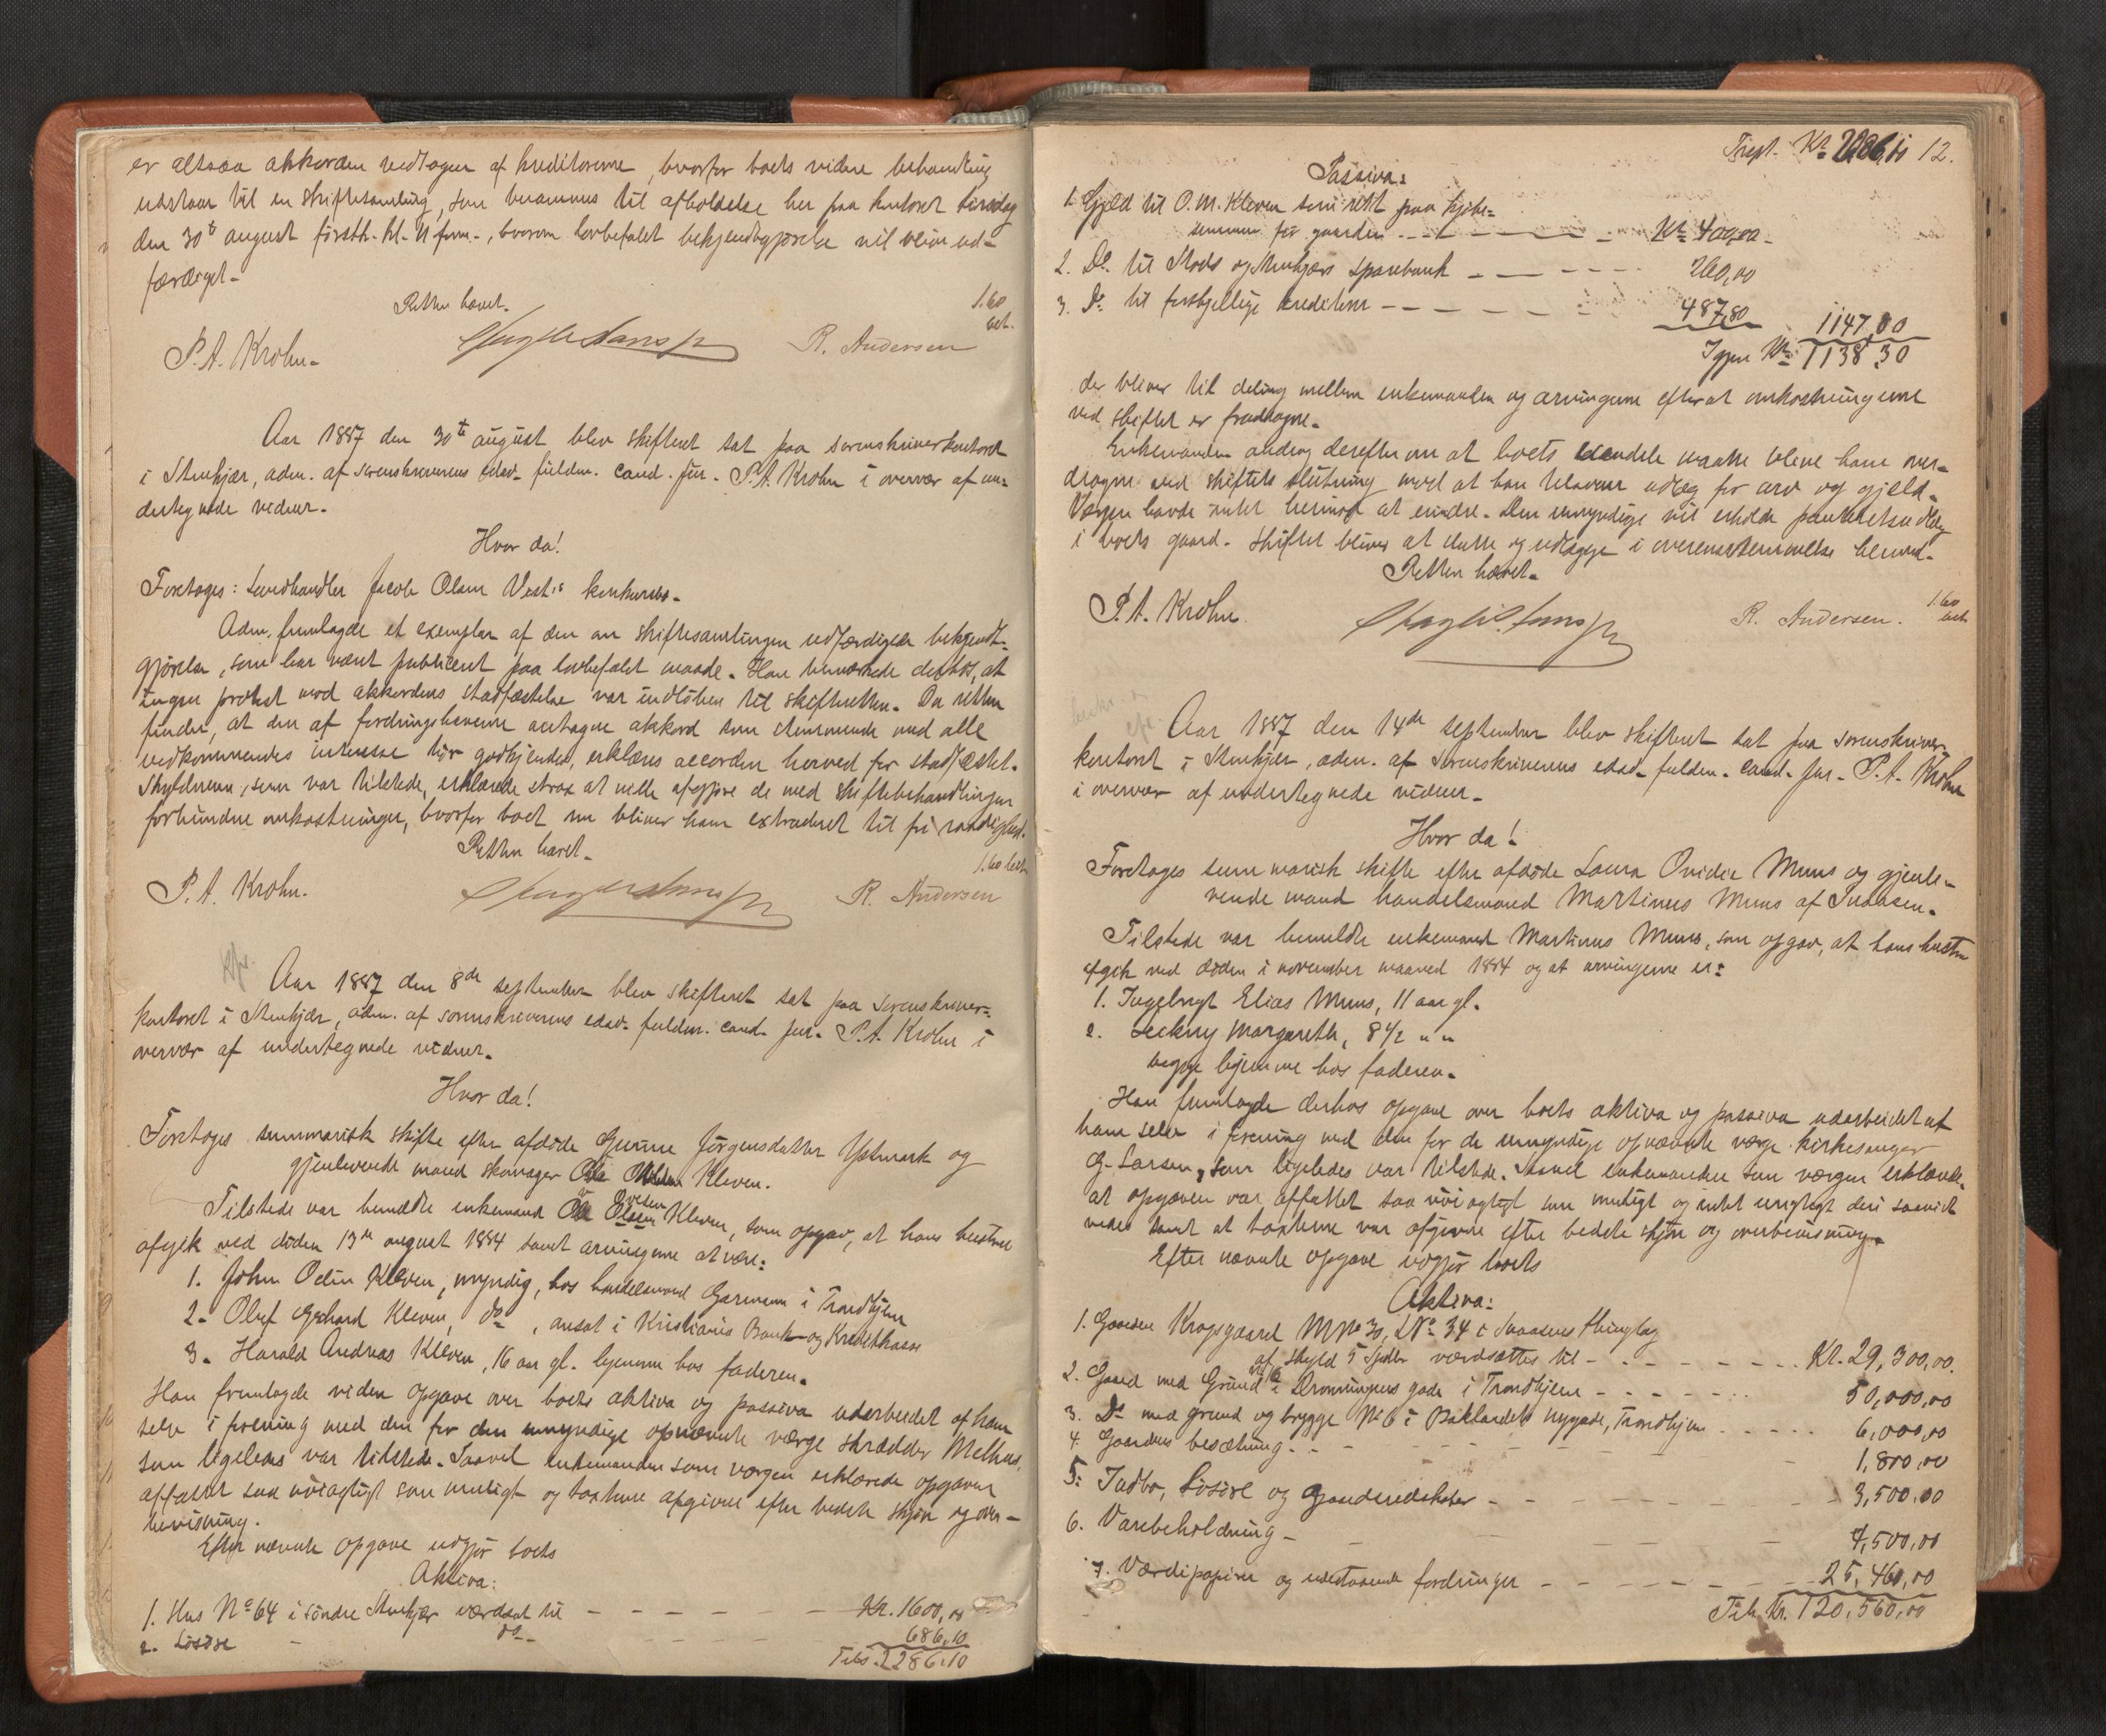 er altsaa akkorden vedtagen af kreditorerne, hvorfor boets videre behandling
udstaar til en skiftesamling, som berammes til afholdelse her paa kontoret tirsdag
den 30te august førstk. kl. 11 form., hvorom lovbefalet bekjendtgjørelse vil blive ud-
færdiget-
Retten hævet.
1.60
bet.
P.A. Krohn-
R. Andersen
Aar 1887 den 30te august blev skifteret sat paa sorenskriverkontoret
i Stenkjær, adm. af sorenskriverens edsv. fuldm. cand. jur. P.A. Krohn i overvær af un-
dertegnede vidner.
Hvor da!
Foretoges: Landhandler Jacob Olsen Vest's konkursbo-
Adm. fremlagde et exemplar af den om skiftesamlingen udfærdigede bekjendt-
gjørelse, som har været publiceret paa lovbefalet maade. Han bemærkede derhos, at
ingen protest mod akkordens stadfæstelse var indløben til skifteretten. Da retten
finder, at den af fordringshaverne antagne akkord som stemmende med alle
vedkommendes interesse bør godkjendes, erklæres accorden herved for stadfæstet.
Skyldneren, som var tilstede, erklærede strax at ville afgjøre de med skiftebehandlingen
forbundne omkostninger, hvorfor boet nu bliver ham extraderet til fri raadighed.
Retten hævet-
1.60 bet.
P.A. Krohn.
R. Andersen
Aar 1887 den 8de september blev skifteret sat paa sorenskriver-
kontoret i Stenkjær, adm. af sorenskriverens edsv. fuldm. cand. jur. P.A. Krohn i
overvær af undertegnede vidner.
Hvor da!
Foretoges summarisk skifte efter afdøde Gurine Jørgensdatter Ystmark og
gjenlevende mand skomager Kleven.
Tilstede var bemeldte enkemand Kleven, som opgav, at hans hustru
afgik ved døden 13de august 1884 samt arvingerne at være:
1. John Odin Kleven, myndig, hos handelsmand Garmann i Trondhjem
2. Oluf Gerhard Kleven, do, ansat i Kristiania Bank- og Kreditkasse
3. Harald Andreas Kleven, 16 aar gl. hjemme hos faderen.
Han fremlagde videre opgave over boets aktiva og passiva udarbeidet af ham
selv i forening med den for den umyndige opnævnte værge skrædder Melhus,
som ligeledes var tilstede. Saavel enkemanden som værgen erklærede opgaven
affattet saa nøiagtigt som muligt og taxterne afgivne efter bedste skjøn og over-
bevisning.
Efter nævnte opgave udgjør boets
Aktiva:
1. Hus No 64 i søndre Stenkjær værdsat til - - - Kr. 1600,00
2. Løsøre - do - - - 686,10
Tils. 2286,10
Trspt. Kr. 2286,10 12.
Passiva:
1. Gjæld til O.M. Kleven som rest paa kjøbe-
summen for gaarden - - - Kr. 400,00-
2. Do. til Stods og Stenkjærs sparebank - - - 260,00
3. Do. til forskjellige kreditorer - - - 487,80
1147,80
Igjen Kr. 1138,30
der bliver til deling mellem enkemanden og arvingerne efterat omkostningerne
ved skiftet er fradragne.
Enkemanden androg derefter om at boets eiendele maatte blive ham over-
dragne ved skiftets slutning mod at han tilsvarer udlæg for arv og gjæld.
Værgen havde intet herimod at erindre. Den umyndige vil erholde panteretsudlæg
i boets gaard. Skiftet bliver at slutte og udlægge i overensstemmelse hermed.
Retten hævet.
P.A. Krohn.
R. Andersen.
1.60
bet.
Aar 1887 den 14de september blev skifteret sat paa sorenskriver-
kontoret i Stenkjær, adm. af sorenskriverens edsv. fuldm. cand. jur. P.A. Krohn
i overvær af undertegnede vidner-
Hvor da!
Foretoges summarisk skifte efter afdøde Laura Ovidie Muus og gjenle-
vende mand handelsmand Martinus Muus af Snaasen.
Tilstede var bemeldte enkemand Martinus Muus, som opgav, at hans hustru
afgik ved døden i november maaned 1884 og at arvingerne er:
1. Ingebrigt Elias Muus, 11 aar gl.
2. Margareth, 8 1/2 " "
begge hjemme hos faderen.
Han fremlagde derhos opgave over boets aktiva og passiva udarbeidet af
ham selv i forening med den for de umyndige opnævnte værge kirkesanger
G. Larsen, som ligeledes var tilstede. Saavel enkemanden som værgen erklærede,
at opgaven var affattet saa nøiagtigt som muligt og intet urigtigt deri saavidt
vides samt at taxterne var afgivne efter bedste skjøn og overbevisning.
Efter nævnte opgave udgjør boets
Aktiva:
1. Gaarden Krogsgaard MNo 30, LNo 34 i Snaasens thinglag
af skyld 5 Spdlr værdsættes til - - - Kr. 29,300,00.
2. Gaard med Grund i Dronningens gade i Trondhjem - - - 50,000,00
3. Do med grund og brygge No 6 i Baklandets nygade, Trondhjem - - - 6,000,00
4. Gaardens besætning - - - 1,800,00
5. Indbo, Løsøre og gaardsredskaber - - - 3,500,00
6. Varebeholdning - - - 4,500,00
7. Værdipapirer og udestaaende fordringer - - - 25,460,00
Tils. Kr. 120,560,00